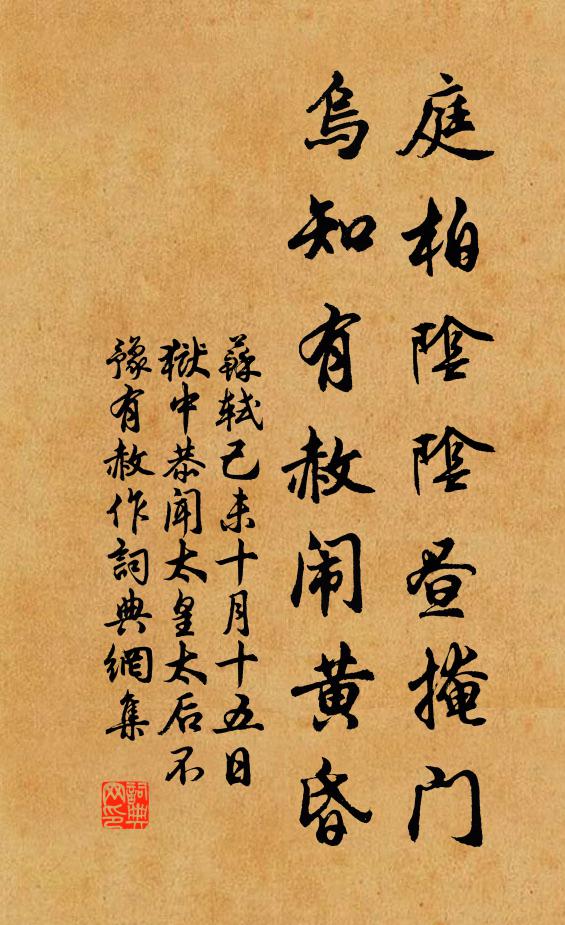 庭柏陰陰昼掩門
烏知有赦闹黄昏
蘇軾己未十月十五日
獄中恭聞太皇太后不
豫有赦作詞典網集
詞典
网印